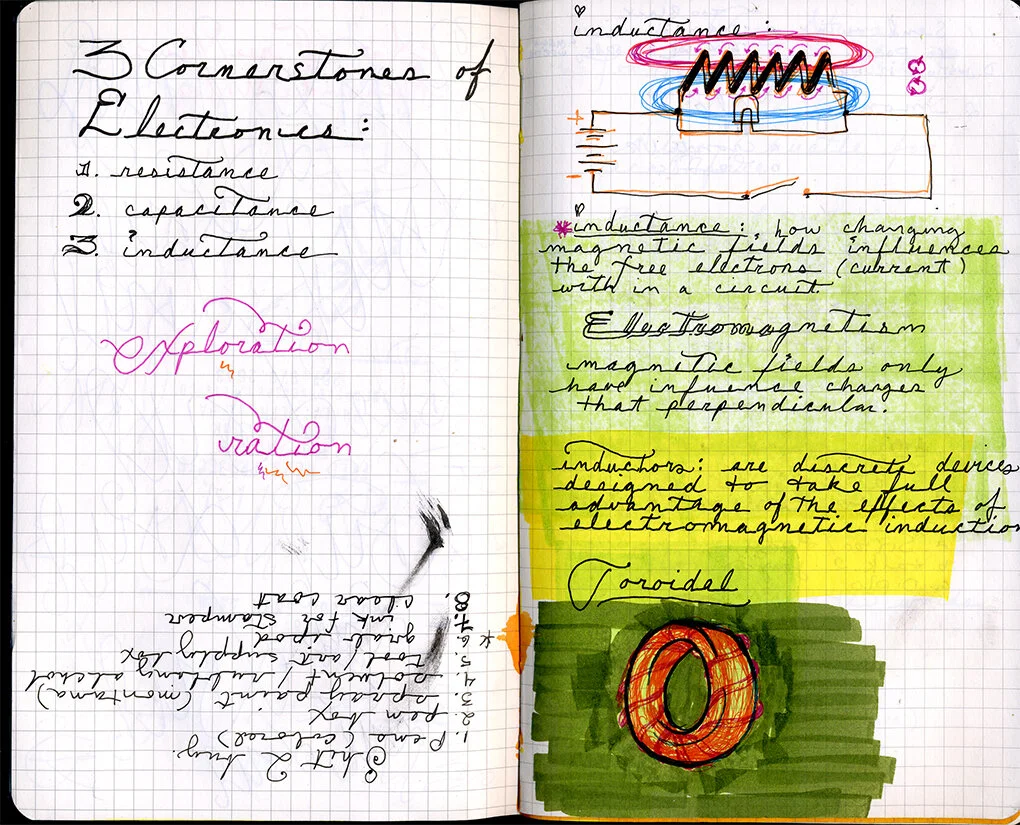 3 Cornerstones of
Electronics:
1. resistance
2. capacitance
3. inductance
exploration
ration
Shit 2 buy.
1. Pens (colored)
2. pen box
3. spray paint (montana)
4. solvent / rubbing alchol
5. tool/art supply box
* 6. grab ipod
7. ink for stamper
8. clear coat
inductance:
+
-
*inductance: how changing
magnetic fields influences
the free electrons (current)
with in a circuit.
Electromagnetism
magnetic fields only
have influence charges
that perpendicular.
inductors: are discrete devices
designed to take full
advantage of the effects of
electromagnetic inductio
Toroidal